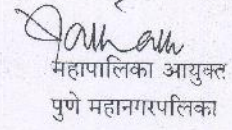 महापालिका आयुक्त
पुणे महानगरपलिका